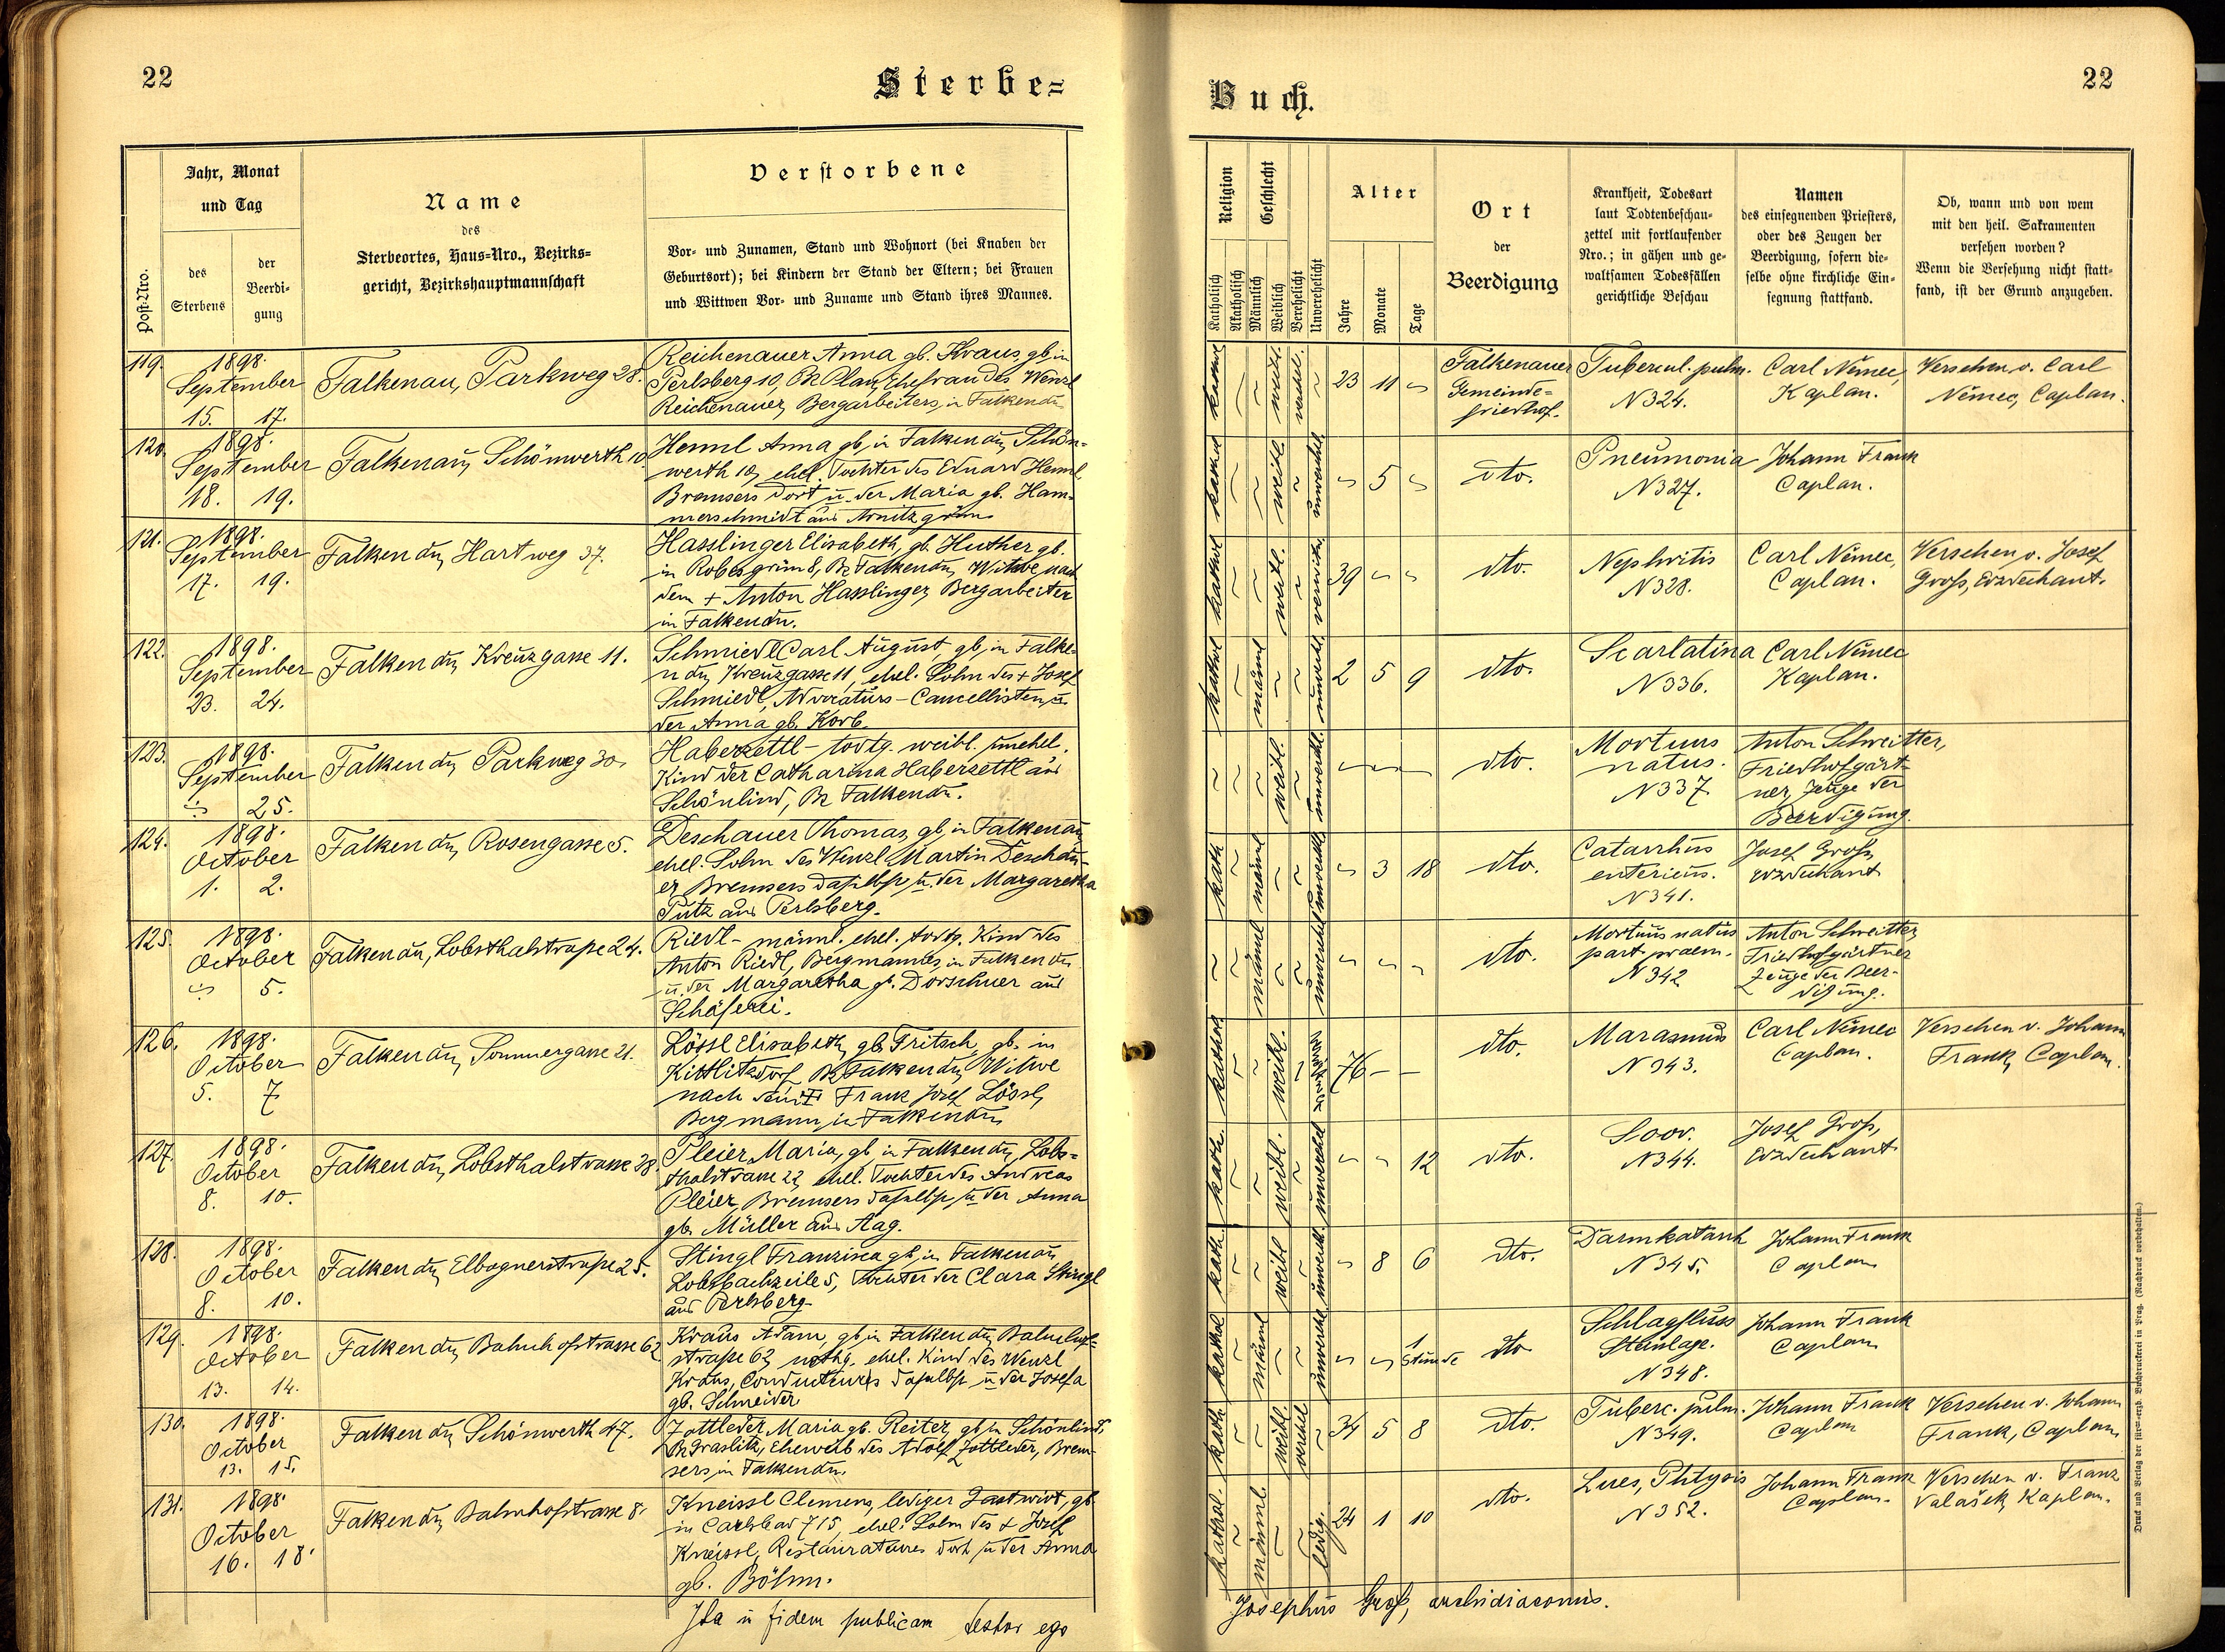 22
Sterbe=
Jahr, Monat
und Tag
Post-Nro.
des
Sterbens
der
Beerdi-
gung
Name
des
Sterbeortes, Haus-Nro., Bezirks-
gericht, Bezirkshauptmannschaft
Verstorbene
Vor- und Zunamen, Stand und Wohnort (bei Knaben der
Geburtsort); bei Kindern der Stand der Eltern; bei Frauen
und Wittwen Vor- und Zuname und Stand ihres Mannes.
119. 1898.
September
15. 17.
Falkenau, Parkweg 28.
Reichenauer Anna gb. Kraus, gb. in
Perlsberg 10, Bz Plan, Ehefrau des Wenzl
Reichenauer, Bergarbeiters, in Falkenau
120. 1898.
September
18. 19.
Falkenau, Schönwerth 10
Heml Anna gb. in Falkenau, Schön-
werth 10, ehel. Tochter des Eduard Heml
Bremsers dort u. der Maria gb. Ham-
merschmidt aus Arnitzgrün
121. 1898.
September
17. 19.
Falkenau, Hartweg 37.
Hasslinger Elisabeth, gb. Huther gb.
in Robesgrün 8, Bz Falkenau, Witwe nach
dem + Anton Hasslinger, Bergarbeiter
in Falkenau.
122. 1898.
September
23. 24.
Falkenau, Kreuzgasse 11.
Schmiedl Carl August, gb. in Falke-
nau, Kreuzgasse 11, ehel. Sohn des + Josef
Schmiedl, Advocaturs-Cancellisten, u.
der Anna gb. Korb.
123. 1898.
September
25.
Falkenau, Parkweg 30.
Haberzettl - todtg. weibl. unehel.
Kind der Catharina Haberzettl aus
Schönlind, Bz Falkenau.
124. 1898.
October
1. 2.
Falkenau, Rosengasse 5.
Deschauer Thomas, gb. in Falkenau,
ehel. Sohn des Wenzl Martin Deschau-
er, Bremsers daselbst u. der Margaretha
Putz aus Perlsberg.
125. 1898.
October
5.
Falkenau, Lobsthalstraße 24.
Riedl - männl. ehel. todtg. Kind des
Anton Riedl, Bergmannes, in Falkenau
u. der Margaretha gb. Dorschner aus
Schäferei.
126. 1898.
October
5. 7
Falkenau, Sommergasse 21.
Lössl Elisabeth, gb. Fritsch, gb. in
Kittlitzdorf, Bz Falkenau, Witwe
nach Franz Josef Lössl,
Bergmann, in Falkenau
127. 1898.
October
8. 10.
Falkenau, Lobsthalstrasse 28.
Pleier Maria, gb. in Falkenau, Lobs-
thalstrasse 22, ehel. Tochter des Andreas
Pleier, Bremsers daselbst u. der Anna
gb. Müller aus Aag.
128. 1898.
October
8. 10.
Falkenau, Elbognerstraße 25.
Stingl Franzisca gb. in Falkenau
Lobsbachzeile 5, Tochter der Clara Stingl
aus Perlsberg
129. 1898.
October
13. 14.
Falkenau, Bahnhofstrasse 62
Kraus Adam, gb. in Falkenau, Bahnhof-
straße 62, nothg. ehel. Kind des Wenzl
Kraus, Conducteurs daselbst u. der Josefa
gb. Schneider
130. 1898.
October
13. 15.
Falkenau, Schönwerth 47.
Zottleder Maria gb. Reiter, gb. in Schönlind,
Bz Graslitz, Eheweib des Adolf Zottleder, Brem-
sers, in Falkenau.
131. 1898.
October
16. 18.
Falkenau, Bahnhofstrasse 8.
Kneissl Clemens, lediger Gastwirt, gb.
in Carlsbad 715, ehel. Sohn des + Josef
Kneissl, Restaurateurs dort u. der Anna
gb. Böhm.
Ita in fidem publicam testor ego
Buch.
22
Religion
Geschlecht
Katholisch
Akatholisch
Männlich
Weiblich
Verehelicht
Unverehelicht
Alter
Jahre
Monate
Tage
Ort
der
Beerdigung
Krankheit, Todesart
laut Todtenbeschau-
zettel mit fortlaufender
Nro.; in gähen und ge-
waltsamen Todesfällen
gerichtliche Beschau
Namen
des einsegnenden Priesters,
oder des Zeugen der
Beerdigung, sofern die-
selbe ohne kirchliche Ein-
segnung stattfand.
Ob, wann und von wem
mit den heil. Sakramenten
versehen worden?
Wenn die Versehung nicht statt-
fand, ist der Grund anzugeben.
kathol weibl. verehel. 23 11
Falkenauer
Gemeinde-
friedhof.
Tubercul. pulm.
N 324.
Carl Němec,
Kaplan.
Versehen v. Carl
Němec, Caplan.
kathol weibl. unverehel. 5 dto.
Pneumonia
N 327.
Johann Frank
Caplan.
kathol weibl. verwitw. 39 dto.
Nephritis
N 328.
Carl Němec,
Caplan.
Versehen v. Josef
Groß, Erzdechant.
kathol männl unverehl. 2 5 9 dto.
Scarlatina
N 336.
Carl Němec
Kaplan.
weibl. unverehl. dto.
Mortuus
natus.
N 337
Anton Schweitter,
Friedhofgärt-
ner, Zeuge der
Beerdigung.
kath männl unverehl. 3 18 dto.
Catarrhus
entericus.
N 341.
Josef Groß,
Erzdechant
männl unverehel dto.
Mortuus natus
part. praem.
N 342
Anton Schweitter,
Friedhofgärtner
Zeuge der Beer-
digung.
kathol weibl. 76 dto.
Marasmus
N 343.
Carl Němec
Caplan.
Versehen v. Johann
Frank, Caplan.
kath. weibl. unverehel 12 dto.
Soor.
N 344.
Josef Groß,
Erzdechant
kath. weibl unverehl. 8 6 dto.
Darmkatarrh
N 345.
Johann Frank
Caplan
kathol männl unverehel 1
Stunde dto
Schlagfluss
N 348.
Johann Frank
Caplan
kath. weibl. verehel 34 5 8 dto.
Tuberc. pulm.
N 349.
Johann Frank
Caplan
Versehen v. Johann
Frank, Caplan,
kathol. männl. ledig. 24 1 10 dto.
Lues, Phtysis
N 352.
Johann Frank
Caplan.
Versehen v. Franz
Valašek, Kaplan.
Josephus Groß, archidiaconus.
Druck und Verlag der fürst-erzb. Buchdruckerei in Prag. (Nachdruck verbehalten.)